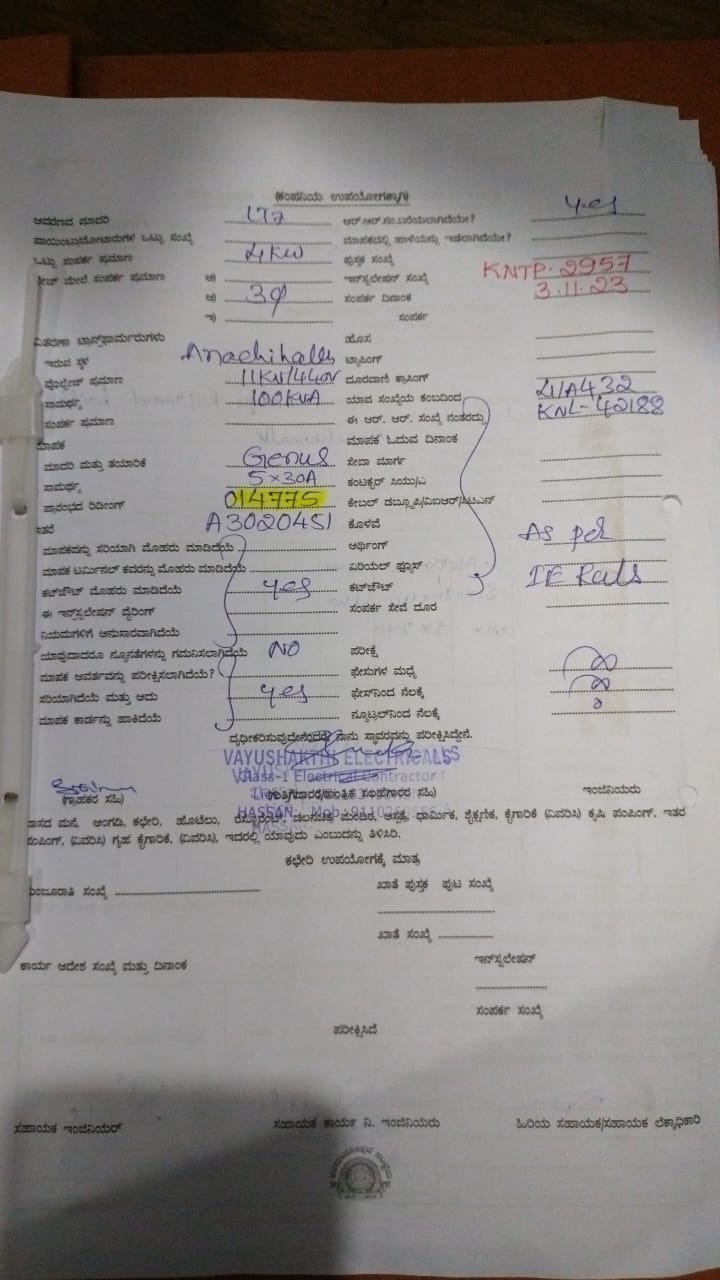 (ಕಂಪನಿಯ ಉಪಯೋಗಕ್ಕಾಗಿ)
ಆವರಣದ ಮಾದರಿ LT7 ಆರ್.ಆರ್.ನಂ.ಬರೆಯಲಾಗಿದೆಯೇ? yes
ಪಾಯಿಂಟು/ಮೋಟಾರುಗಳ ಒಟ್ಟು ಸಂಖ್ಯೆ ಮಾಪಕದಲ್ಲಿ ಹಾಳೆಯನ್ನು ಇಡಲಾಗಿದೆಯೇ?
ಒಟ್ಟು ಸಂಪರ್ಕ ಪ್ರಮಾಣ 4KW ಪುಸ್ತಕ ಸಂಖ್ಯೆ
ಫೇಜ್ ಮೇಲೆ ಸಂಪರ್ಕ ಪ್ರಮಾಣ ಅ) ಇನ್‌ಸ್ಟಲೇಷನ್ ಸಂಖ್ಯೆ KNTP-2957
ಆ) 3φ ಸಂಪರ್ಕ ದಿನಾಂಕ 3.11.23
ಇ) ಸಂಪರ್ಕ
ವಿತರಣಾ ಟ್ರಾನ್ಸ್‌ಫಾರ್ಮರುಗಳು ಹೊಸ
ಇರುವ ಸ್ಥಳ Anachihally ಟ್ಯಾಪಿಂಗ್
ವೊಲ್ಟೇಜ್ ಪ್ರಮಾಣ 11KV/440V ದೂರವಾಣಿ ಕ್ರಾಸಿಂಗ್
ಸಾಮರ್ಥ್ಯ 100KVA ಯಾವ ಸಂಖ್ಯೆಯ ಕಂಬದಿಂದ 411A432
ಸಂಪರ್ಕ ಪ್ರಮಾಣ ಈ ಆರ್. ಆರ್. ಸಂಖ್ಯೆ ನಂತರದ್ದು KNL-42188
ಮಾಪಕ ಮಾಪಕ ಓದುವ ದಿನಾಂಕ
ಮಾದರಿ ಮತ್ತು ತಯಾರಿಕೆ Genus ಸೇವಾ ಮಾರ್ಗ
ಸಾಮರ್ಥ್ಯ 5×30A ಕಂಟಕ್ಟರ್ ಸಿಯು/ಎ
ಪ್ರಾರಂಭದ ರಿಡೀಂಗ್ 014775 ಕೇಬಲ್ ಡಬ್ಲ್ಯೂಪಿ/ವಿಐಆರ್/ಸಿಟಿಎಸ್
ಇತರೆ A3020451 ಕೊಳವೆ
ಮಾಪಕವನ್ನು ಸರಿಯಾಗಿ ಮೊಹರು ಮಾಡಿದೆಯೆ ಅರ್ಥಿಂಗ್ As per
ಮಾಪಕ ಟರ್ಮಿನಲ್ ಕವರನ್ನು ಮೊಹರು ಮಾಡಿದೆಯೆ ಏರಿಯಲ್ ಫ್ಯೂಸ್
ಕಟ್‌ಔಟ್ ಮೊಹರು ಮಾಡಿದೆಯೆ yes ಕಟ್‌ಔಟ್ IE Ruls
ಈ ಇನ್‌ಸ್ಟಲೇಷನ್ ವೈರಿಂಗ್ ಸಂಪರ್ಕ ಸೇವೆ ದೂರ
ನಿಯಮಗಳಿಗೆ ಅನುಸಾರವಾಗಿದೆಯೆ
ಯಾವುದಾದರೂ ನ್ಯೂನತೆಗಳನ್ನು ಗಮನಿಸಲಾಗಿದೆಯೆ NO ಪರೀಕ್ಷೆ
ಮಾಪಕ ಆವರ್ತವನ್ನು ಪರೀಕ್ಷಿಸಲಾಗಿದೆಯೆ? ಫೇಸುಗಳ ಮಧ್ಯೆ ∞
ಸರಿಯಾಗಿದೆಯೆ ಮತ್ತು ಅದು yes ಫೇಸ್‌ನಿಂದ ನೆಲಕ್ಕೆ ∞
ಮಾಪಕ ಕಾರ್ಡನ್ನು ಹಾಕಿದೆಯೆ ನ್ಯೂಟ್ರಲ್‌ನಿಂದ ನೆಲಕ್ಕೆ
ದೃಢೀಕರಿಸುವುದೇನೆಂದರೆ ನಾನು ಸ್ಥಾವರವನ್ನು ಪರೀಕ್ಷಿಸಿದ್ದೇನೆ.
VAYUSHAKTHI ELECTRICALS
Class-1 Electrical Contractor
(ಗ್ರಾಹಕರ ಸಹಿ) ಇಂಜಿನಿಯರು
HASSAN. Mob:
ವಾಸದ ಮನೆ, ಅಂಗಡಿ, ಕಛೇರಿ, ಹೊಟೆಲು, ರೆಸ್ಟೋರೆಂಟ್, ಚಲನಚಿತ್ರ ಮಂದಿರ, ಆಸ್ಪತ್ರೆ, ಧಾರ್ಮಿಕ, ಶೈಕ್ಷಣಿಕ, ಕೈಗಾರಿಕೆ (ವಿವರಿಸಿ) ಕೃಷಿ ಪಂಪಿಂಗ್, ಇತರ
ಪಂಪಿಂಗ್, (ವಿವರಿಸಿ) ಗೃಹ ಕೈಗಾರಿಕೆ, (ವಿವರಿಸಿ), ಇದರಲ್ಲಿ ಯಾವುದು ಎಂಬುದನ್ನು ತಿಳಿಸಿರಿ.
ಕಛೇರಿ ಉಪಯೋಗಕ್ಕೆ ಮಾತ್ರ
ಮಂಜೂರಾತಿ ಸಂಖ್ಯೆ ಖಾತೆ ಪುಸ್ತಕ ಪುಟ ಸಂಖ್ಯೆ
ಖಾತೆ ಸಂಖ್ಯೆ
ಕಾರ್ಯ ಆದೇಶ ಸಂಖ್ಯೆ ಮತ್ತು ದಿನಾಂಕ ಇನ್‌ಸ್ಟಲೇಷನ್
ಸಂಪರ್ಕ ಸಂಖ್ಯೆ
ಪರೀಕ್ಷಿಸಿದೆ
ಸಹಾಯಕ ಇಂಜಿನಿಯರ್ ಸಹಾಯಕ ಕಾರ್ಯ ನಿ. ಇಂಜಿನಿಯರು ಹಿರಿಯ ಸಹಾಯಕ/ಸಹಾಯಕ ಲೆಕ್ಕಾಧಿಕಾರಿ